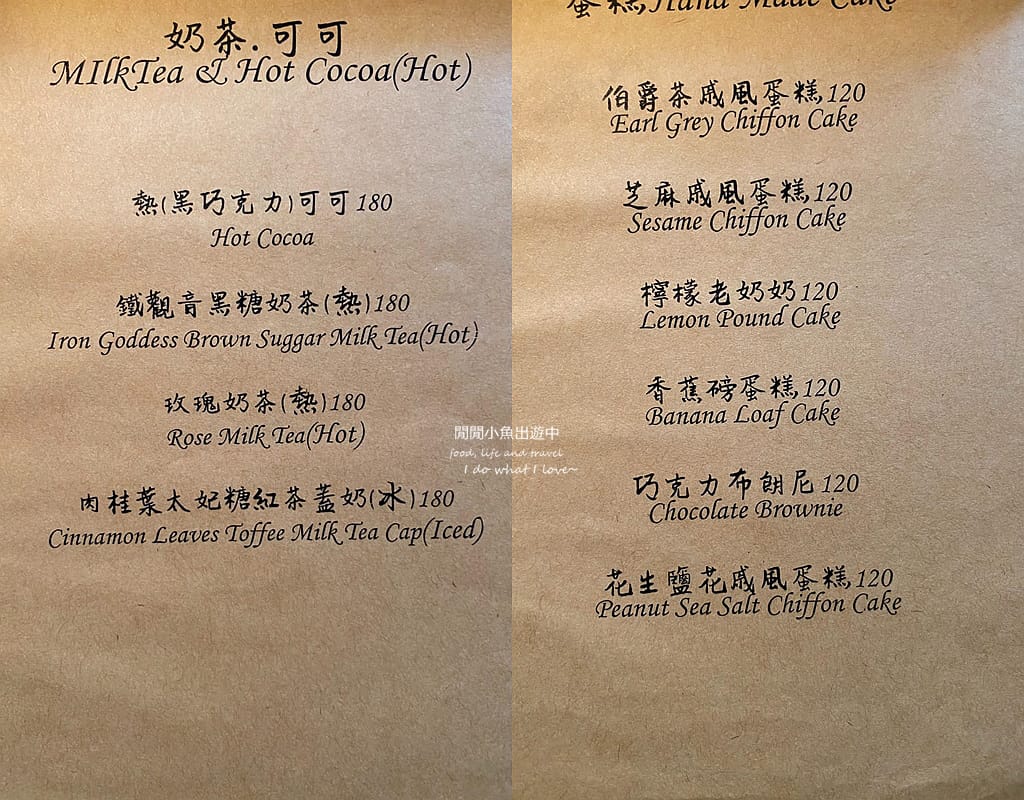 奶茶.可可
MIlkTea & Hot Cocoa(Hot)
熱(黑巧克力)可可180
Hot Cocoa
鐵觀音黑糖奶茶(熱)180
Iron Goddess Brown Suggar Milk Tea(Hot)
玫瑰奶茶(熱)180
Rose Milk Tea(Hot)
肉桂葉太妃糖紅茶蓋奶(冰)180
Cinnamon Leaves Toffee Milk Tea Cap(Iced)
閒閒小魚出遊中
food, life and travel
I do what I love~
蛋糕Hand Made Cake
伯爵茶戚風蛋糕120
Earl Grey Chiffon Cake
芝麻戚風蛋糕120
Sesame Chiffon Cake
檸檬老奶奶120
Lemon Pound Cake
香蕉磅蛋糕120
Banana Loaf Cake
巧克力布朗尼120
Chocolate Brownie
花生鹽花戚風蛋糕120
Peanut Sea Salt Chiffon Cake